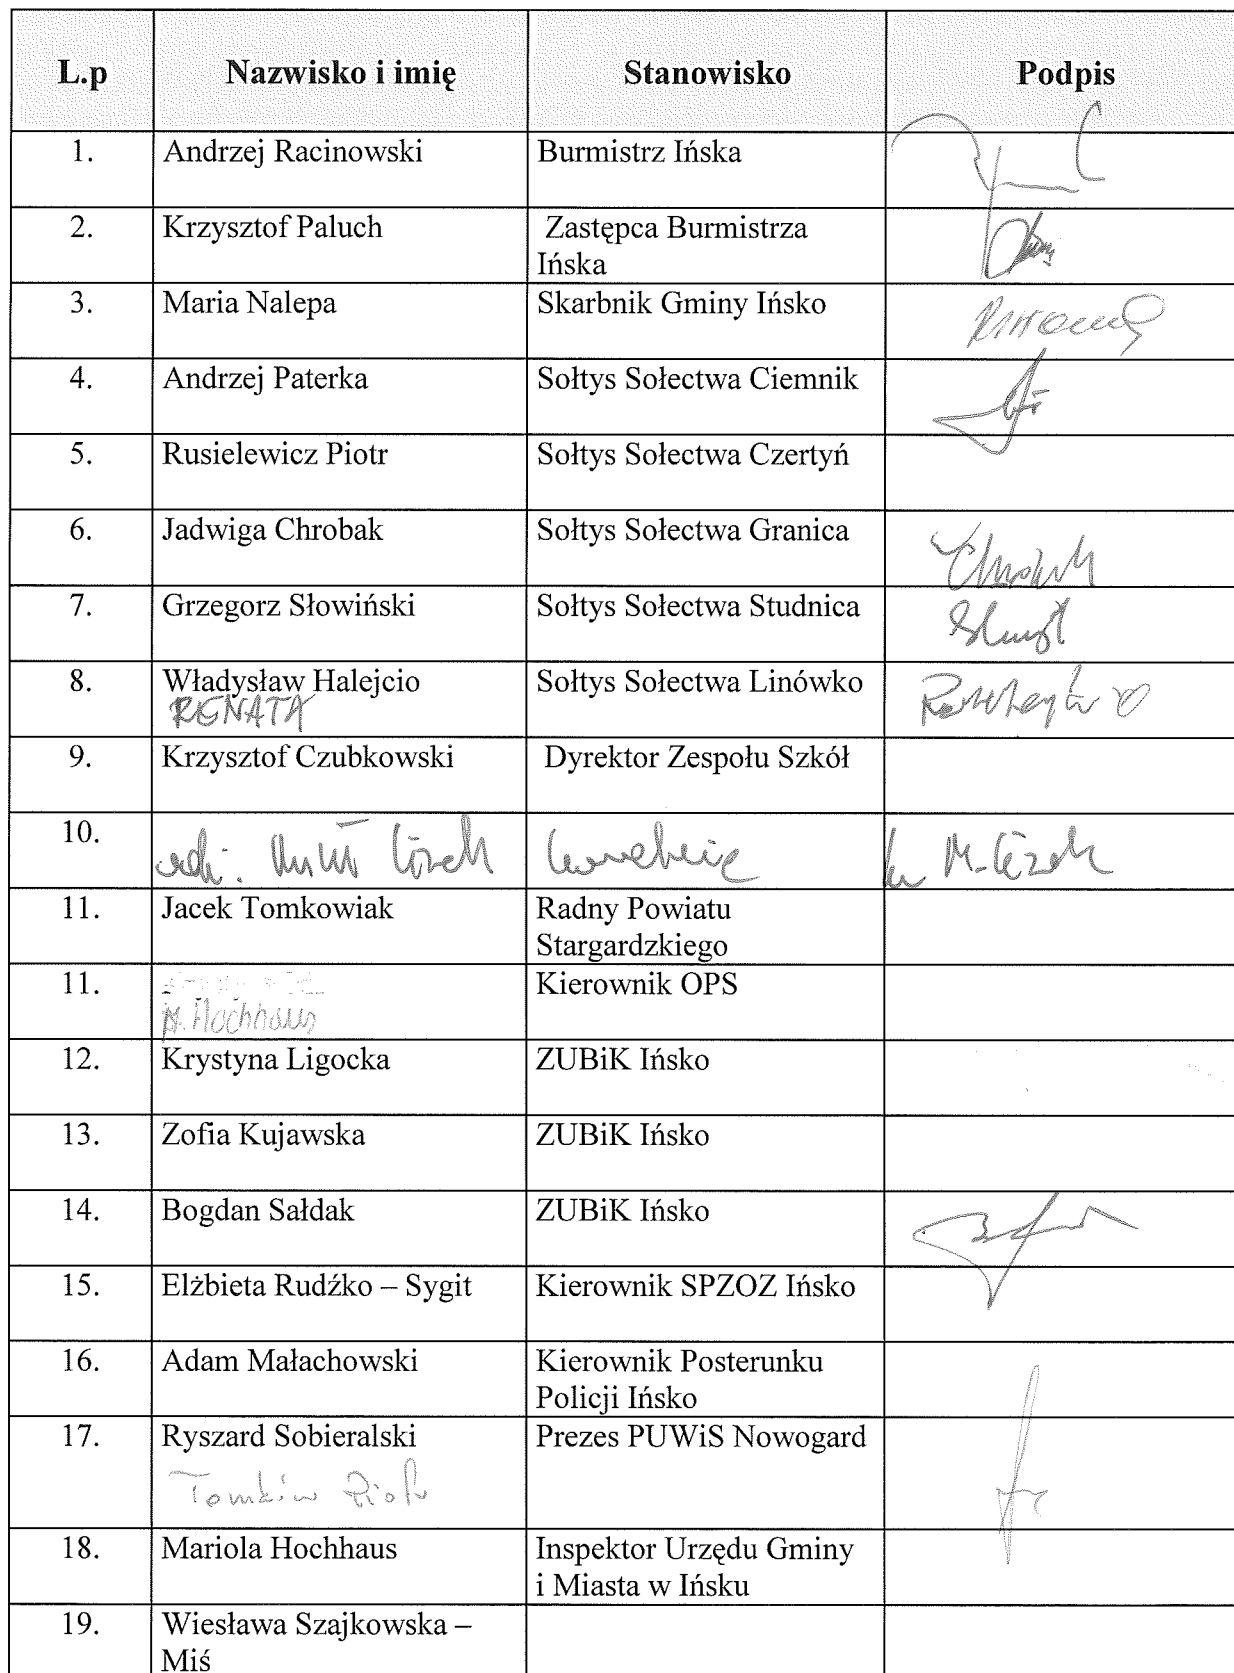 L.p Nazwisko i imię Stanowisko Podpis
1. Andrzej Racinowski Burmistrz Ińska
2. Krzysztof Paluch Zastępca Burmistrza
Ińska
3. Maria Nalepa Skarbnik Gminy Ińsko
4. Andrzej Paterka Sołtys Sołectwa Ciemnik
5. Rusielewicz Piotr Sołtys Sołectwa Czertyń
6. Jadwiga Chrobak Sołtys Sołectwa Granica
7. Grzegorz Słowiński Sołtys Sołectwa Studnica
8. Władysław Halejcio Sołtys Sołectwa Linówko
RENATA
9. Krzysztof Czubkowski Dyrektor Zespołu Szkół
10.
11. Jacek Tomkowiak Radny Powiatu
Stargardzkiego
11. Kierownik OPS
M. Hochhaus
12. Krystyna Ligocka ZUBiK Ińsko
13. Zofia Kujawska ZUBiK Ińsko
14. Bogdan Sałdak ZUBiK Ińsko
15. Elżbieta Rudźko – Sygit Kierownik SPZOZ Ińsko
16. Adam Małachowski Kierownik Posterunku
Policji Ińsko
17. Ryszard Sobieralski Prezes PUWiS Nowogard
Tomków Piotr
18. Mariola Hochhaus Inspektor Urzędu Gminy
i Miasta w Ińsku
19. Wiesława Szajkowska –
Miś